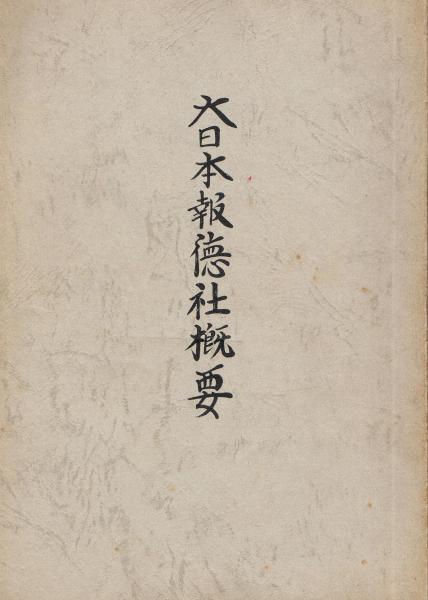 大日本報徳社概要